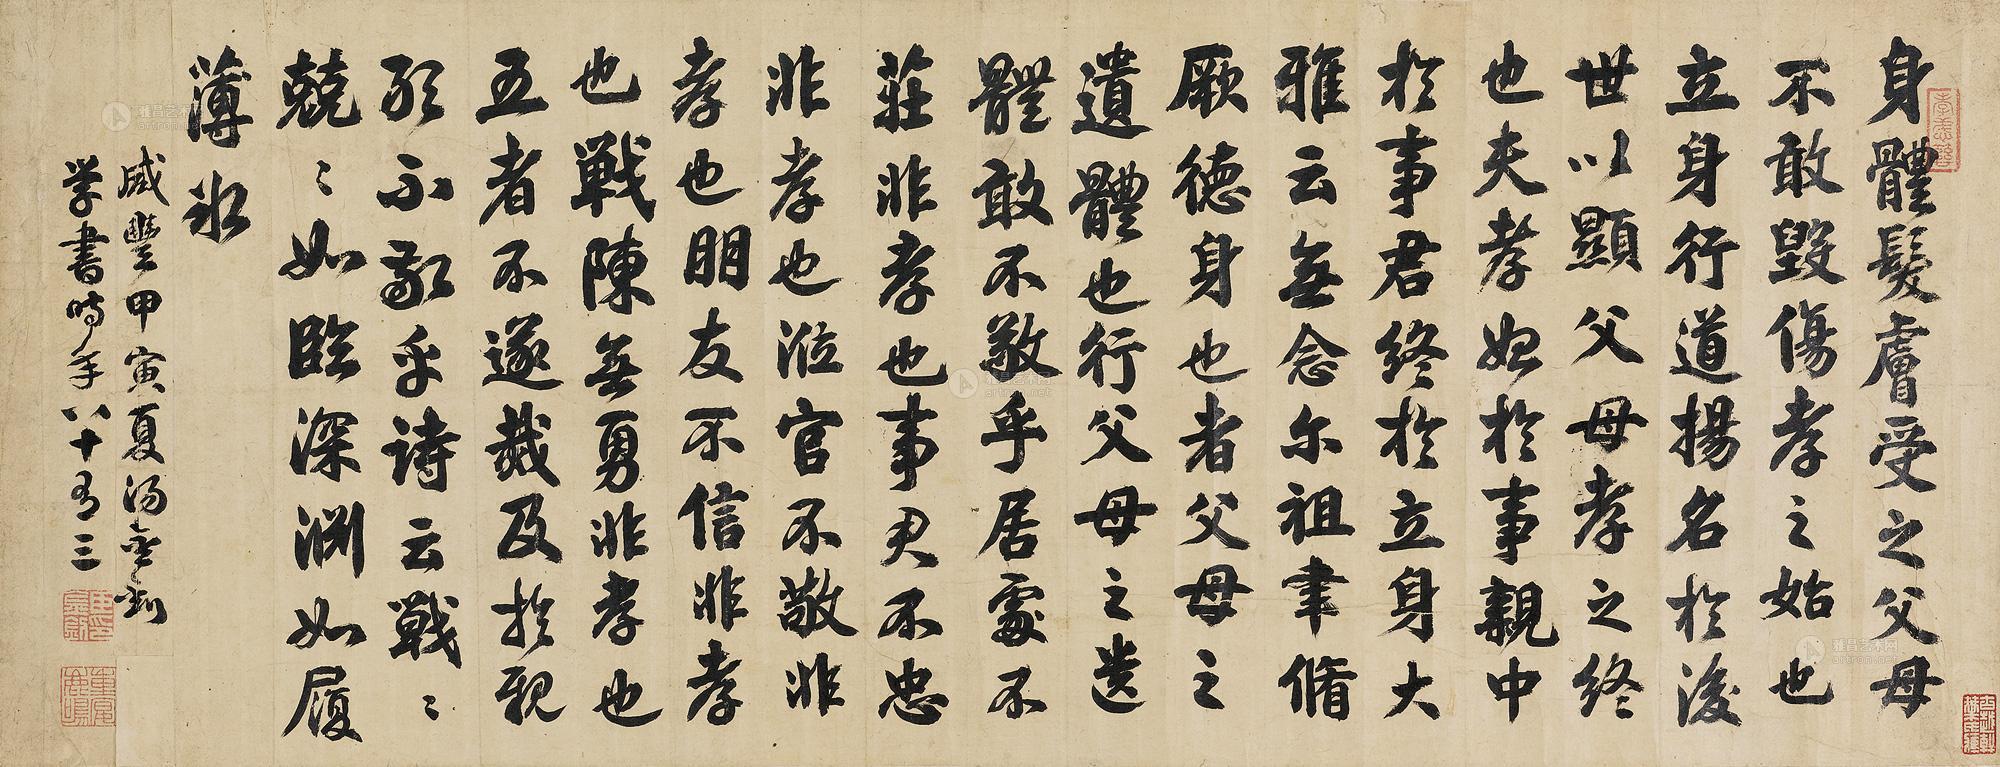 身體髮膚受之父母
不敢毀傷孝之始也
立身行道揚名於後
世以顯父母孝之終
也夫孝始於事親中
於事君終於立身大
雅云無念尔祖聿脩
厥德身也者父母之
遺體也行父母之遺
體敢不敬乎居處不
莊非孝也事君不忠
非孝也涖官不敬非
孝也朋友不信非孝
也戰陳無勇非孝也
五者不遂烖及於親
敢不敬乎詩云戰〻
兢〻如臨深淵如履
薄冰
咸豐甲寅夏湯金釗
學書時年八十有三
重宴鹿鳴
雅昌艺术网
artron.net